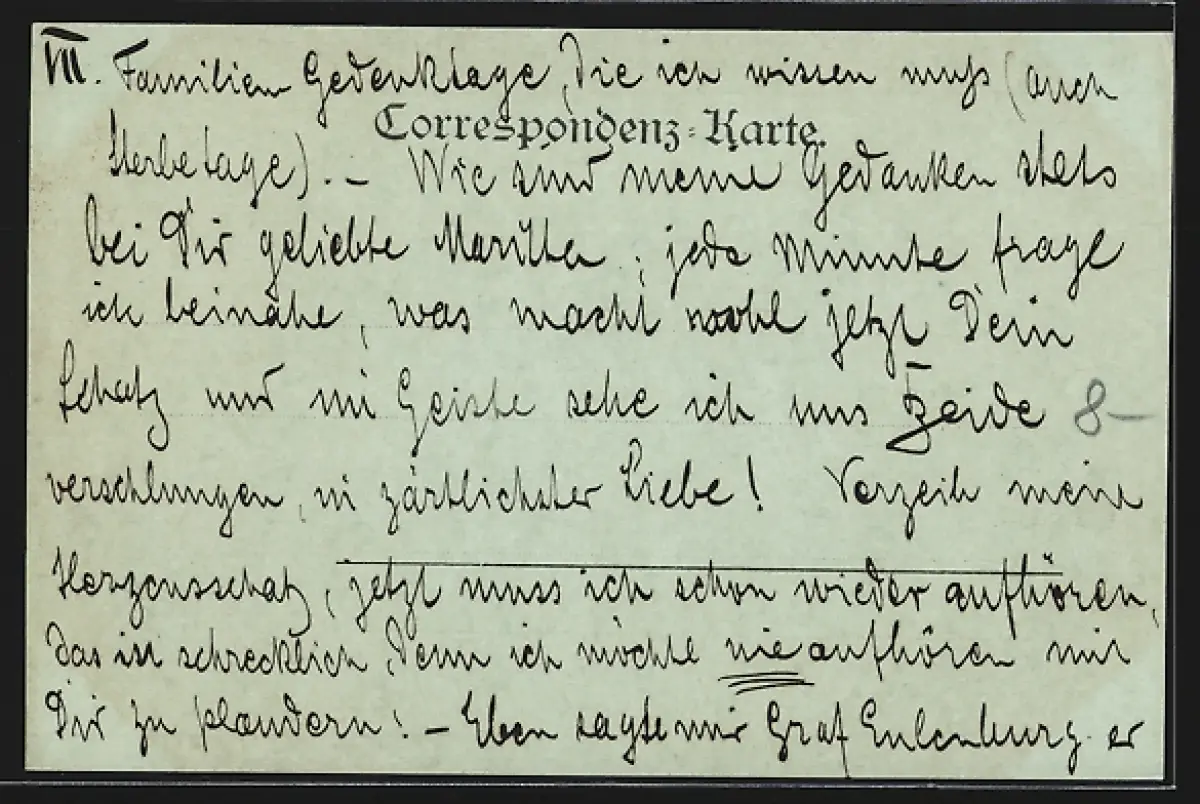 VII. Familien Gedenktage, die ich wissen muß (auch
Correspondenz-Karte.
Sterbetage). – Wie sind meine Gedanken stets
bei Dir geliebte Maritta; jede Minute frage
ich beinahe, was macht wohl jetzt Dein
Schatz und im Geiste sehe ich uns Beide 8–
verschlungen, in zärtlichster Liebe! Verzeih mein
Herzensschatz, jetzt muss ich schon wieder aufhören,
das ist schrecklich, denn ich möchte nie aufhören mit
Dir zu plaudern! – Eben sagte mir Graf Eulenburg er